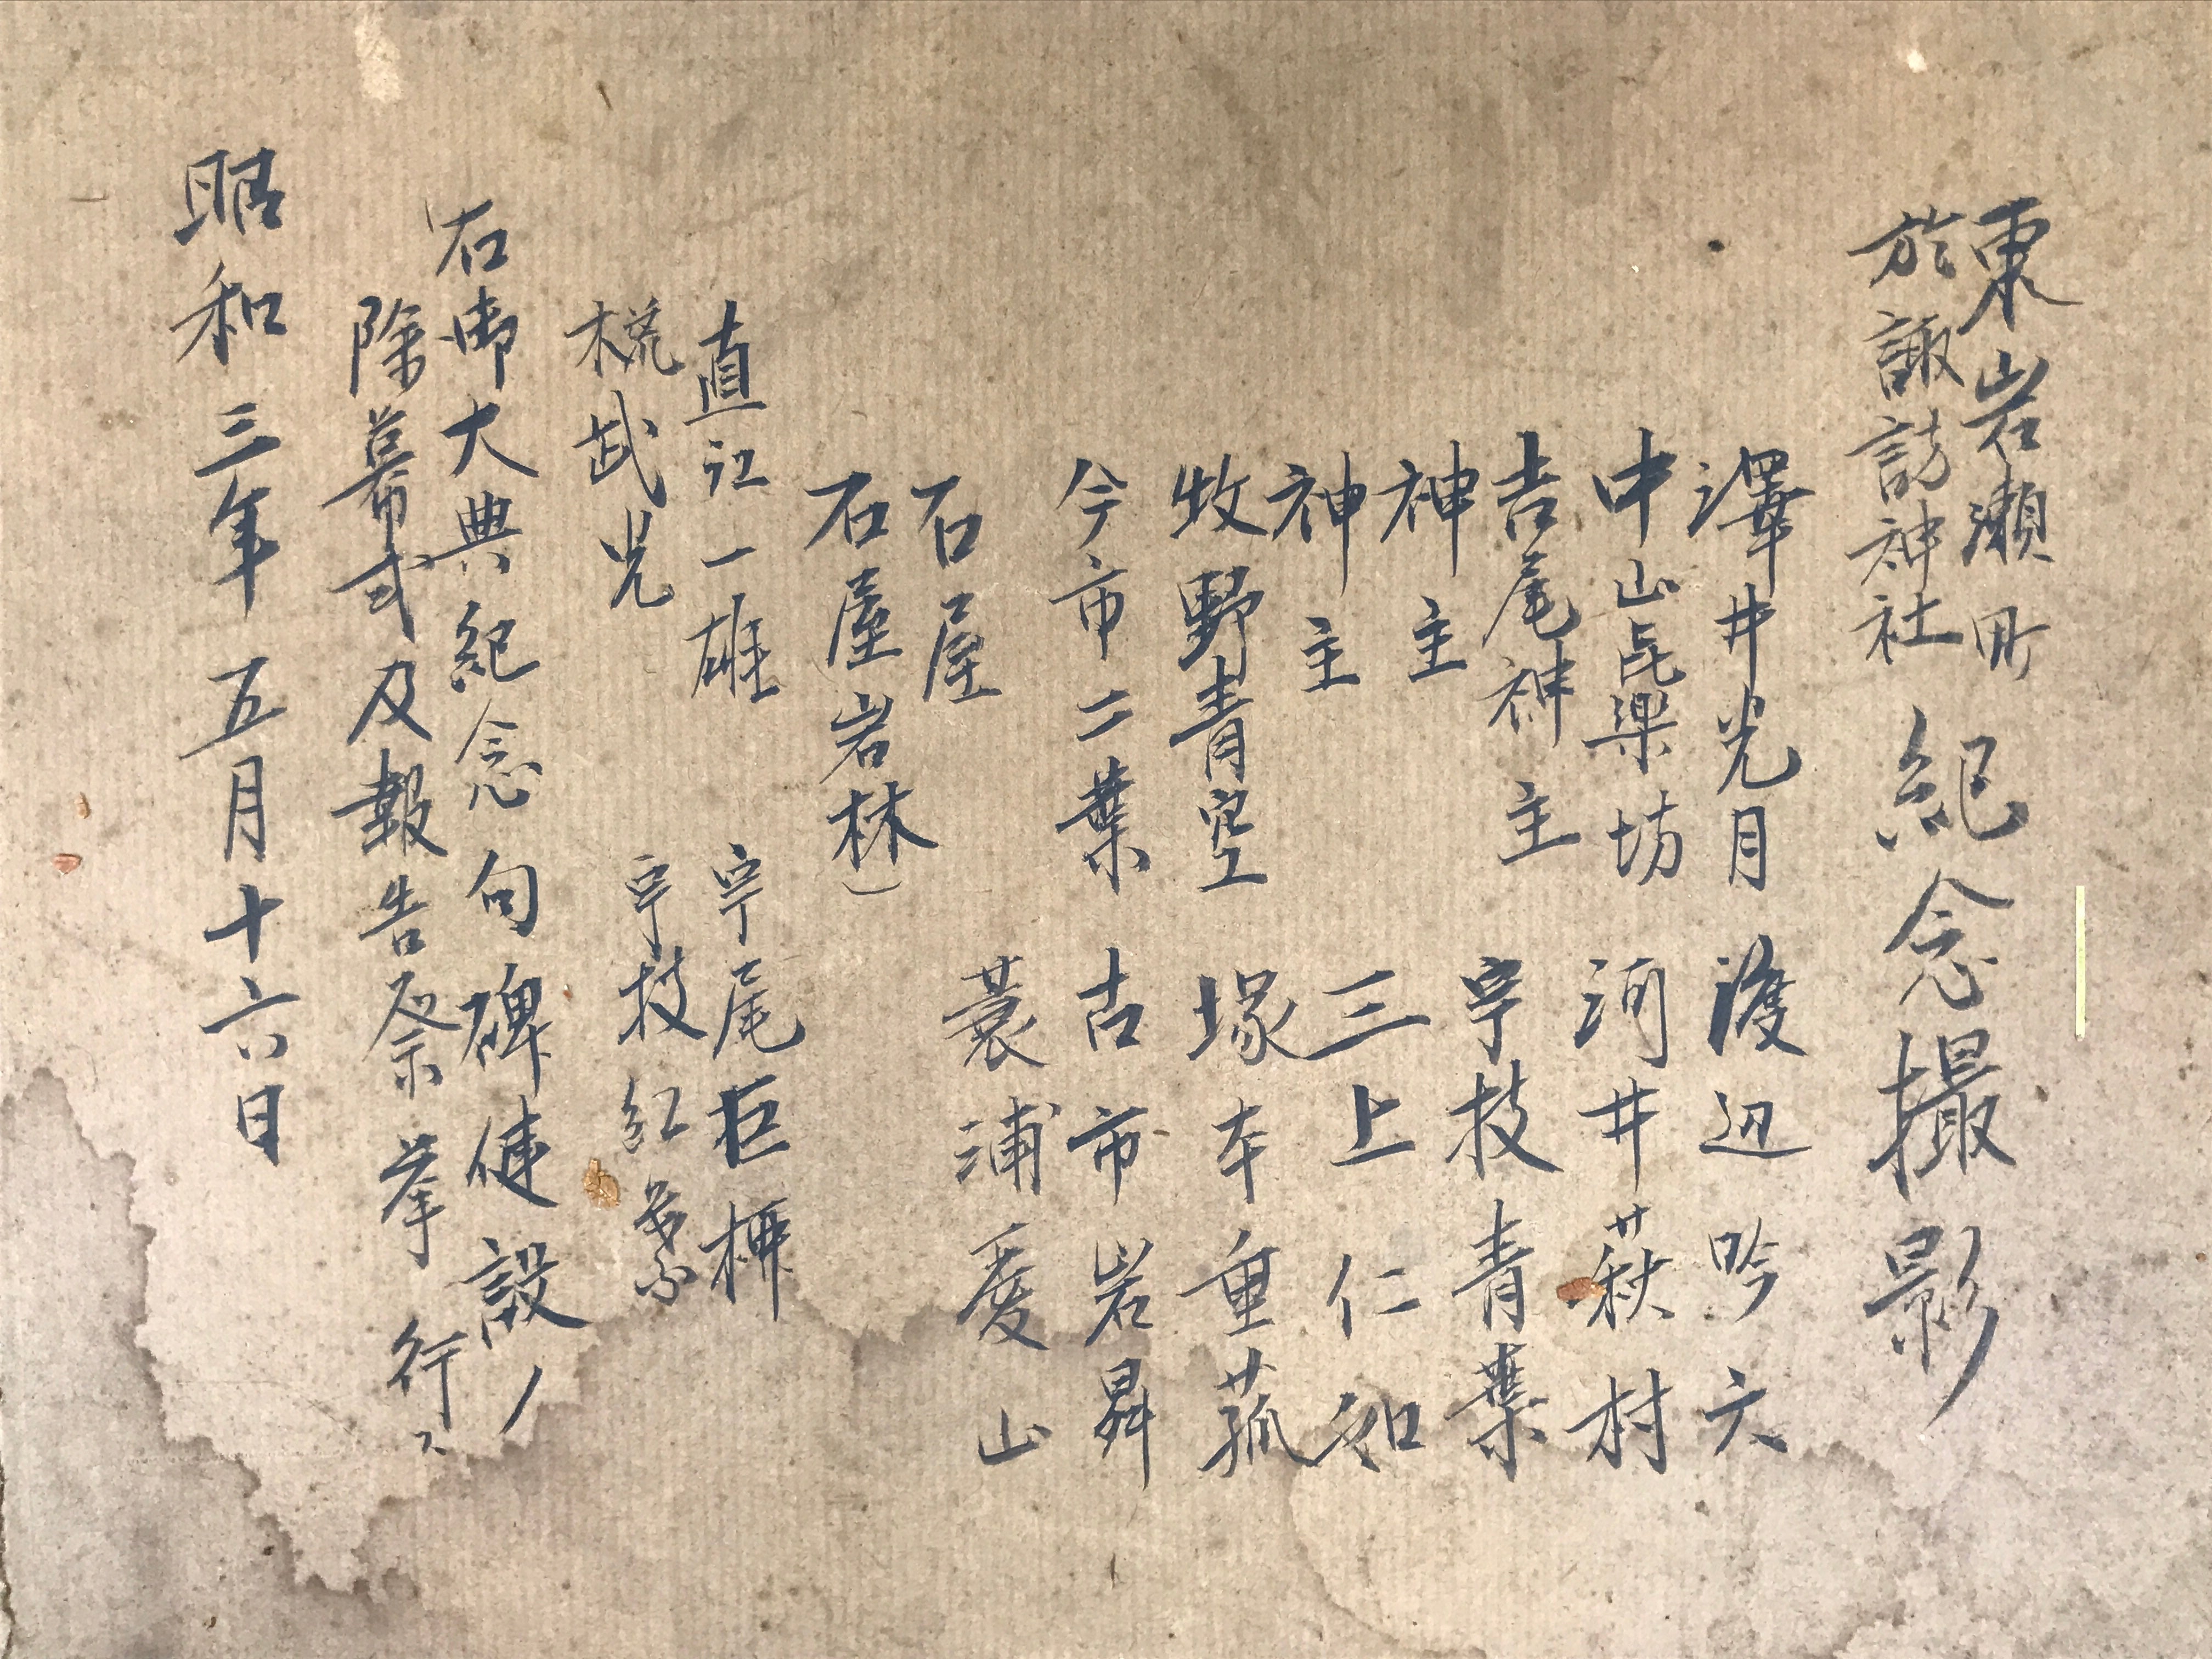 東岩瀬町
於諏訪神社
紀念撮影
澤井光月 渡辺吟六
中山気楽坊 河井萩村
吉尾神主 宇枝青葉
神主 三上仁和
神主 塚本重孤
牧野青空 古市岩昇
今市二葉 蓑浦愛山
石屋
石屋岩林
直江一雄 宇尾巨
武光 宇枝紅葉
右御大典紀念句碑健設ノ
除幕式及報告祭挙行ス
昭和三年五月十六日